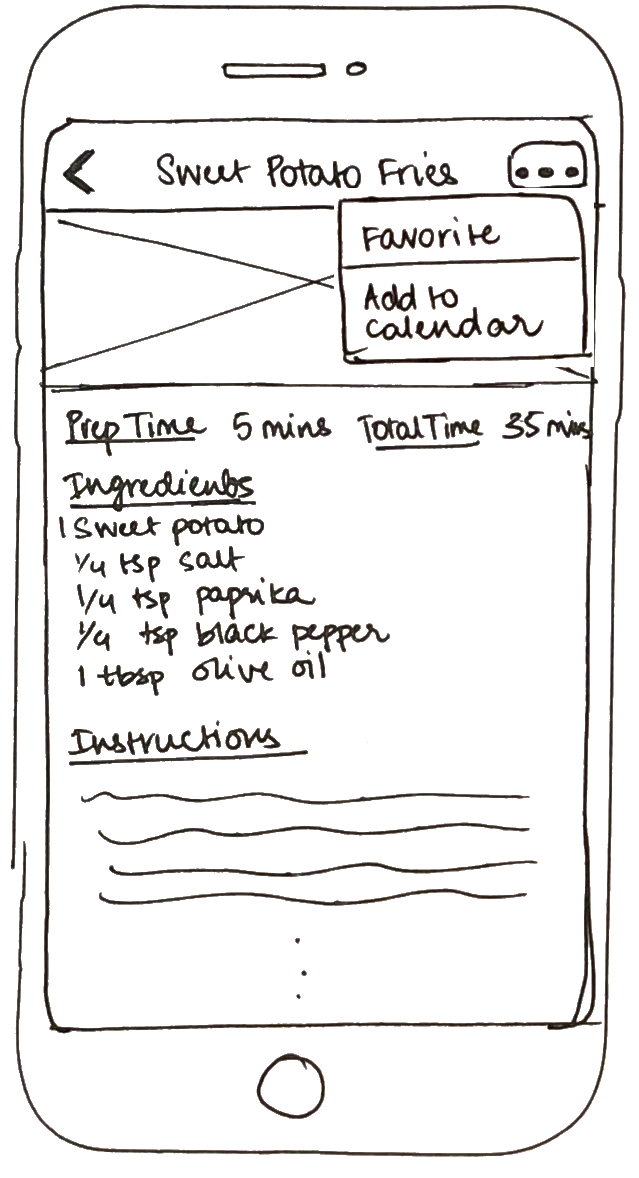 Sweet Potato Fries
Favorite
Add to
calendar
Prep Time 5 mins Total Time 35 mins
Ingredients
1 Sweet potato
1/4 tsp salt
1/4 tsp paprika
1/4 tsp black pepper
1 tbsp olive oil
Instructions